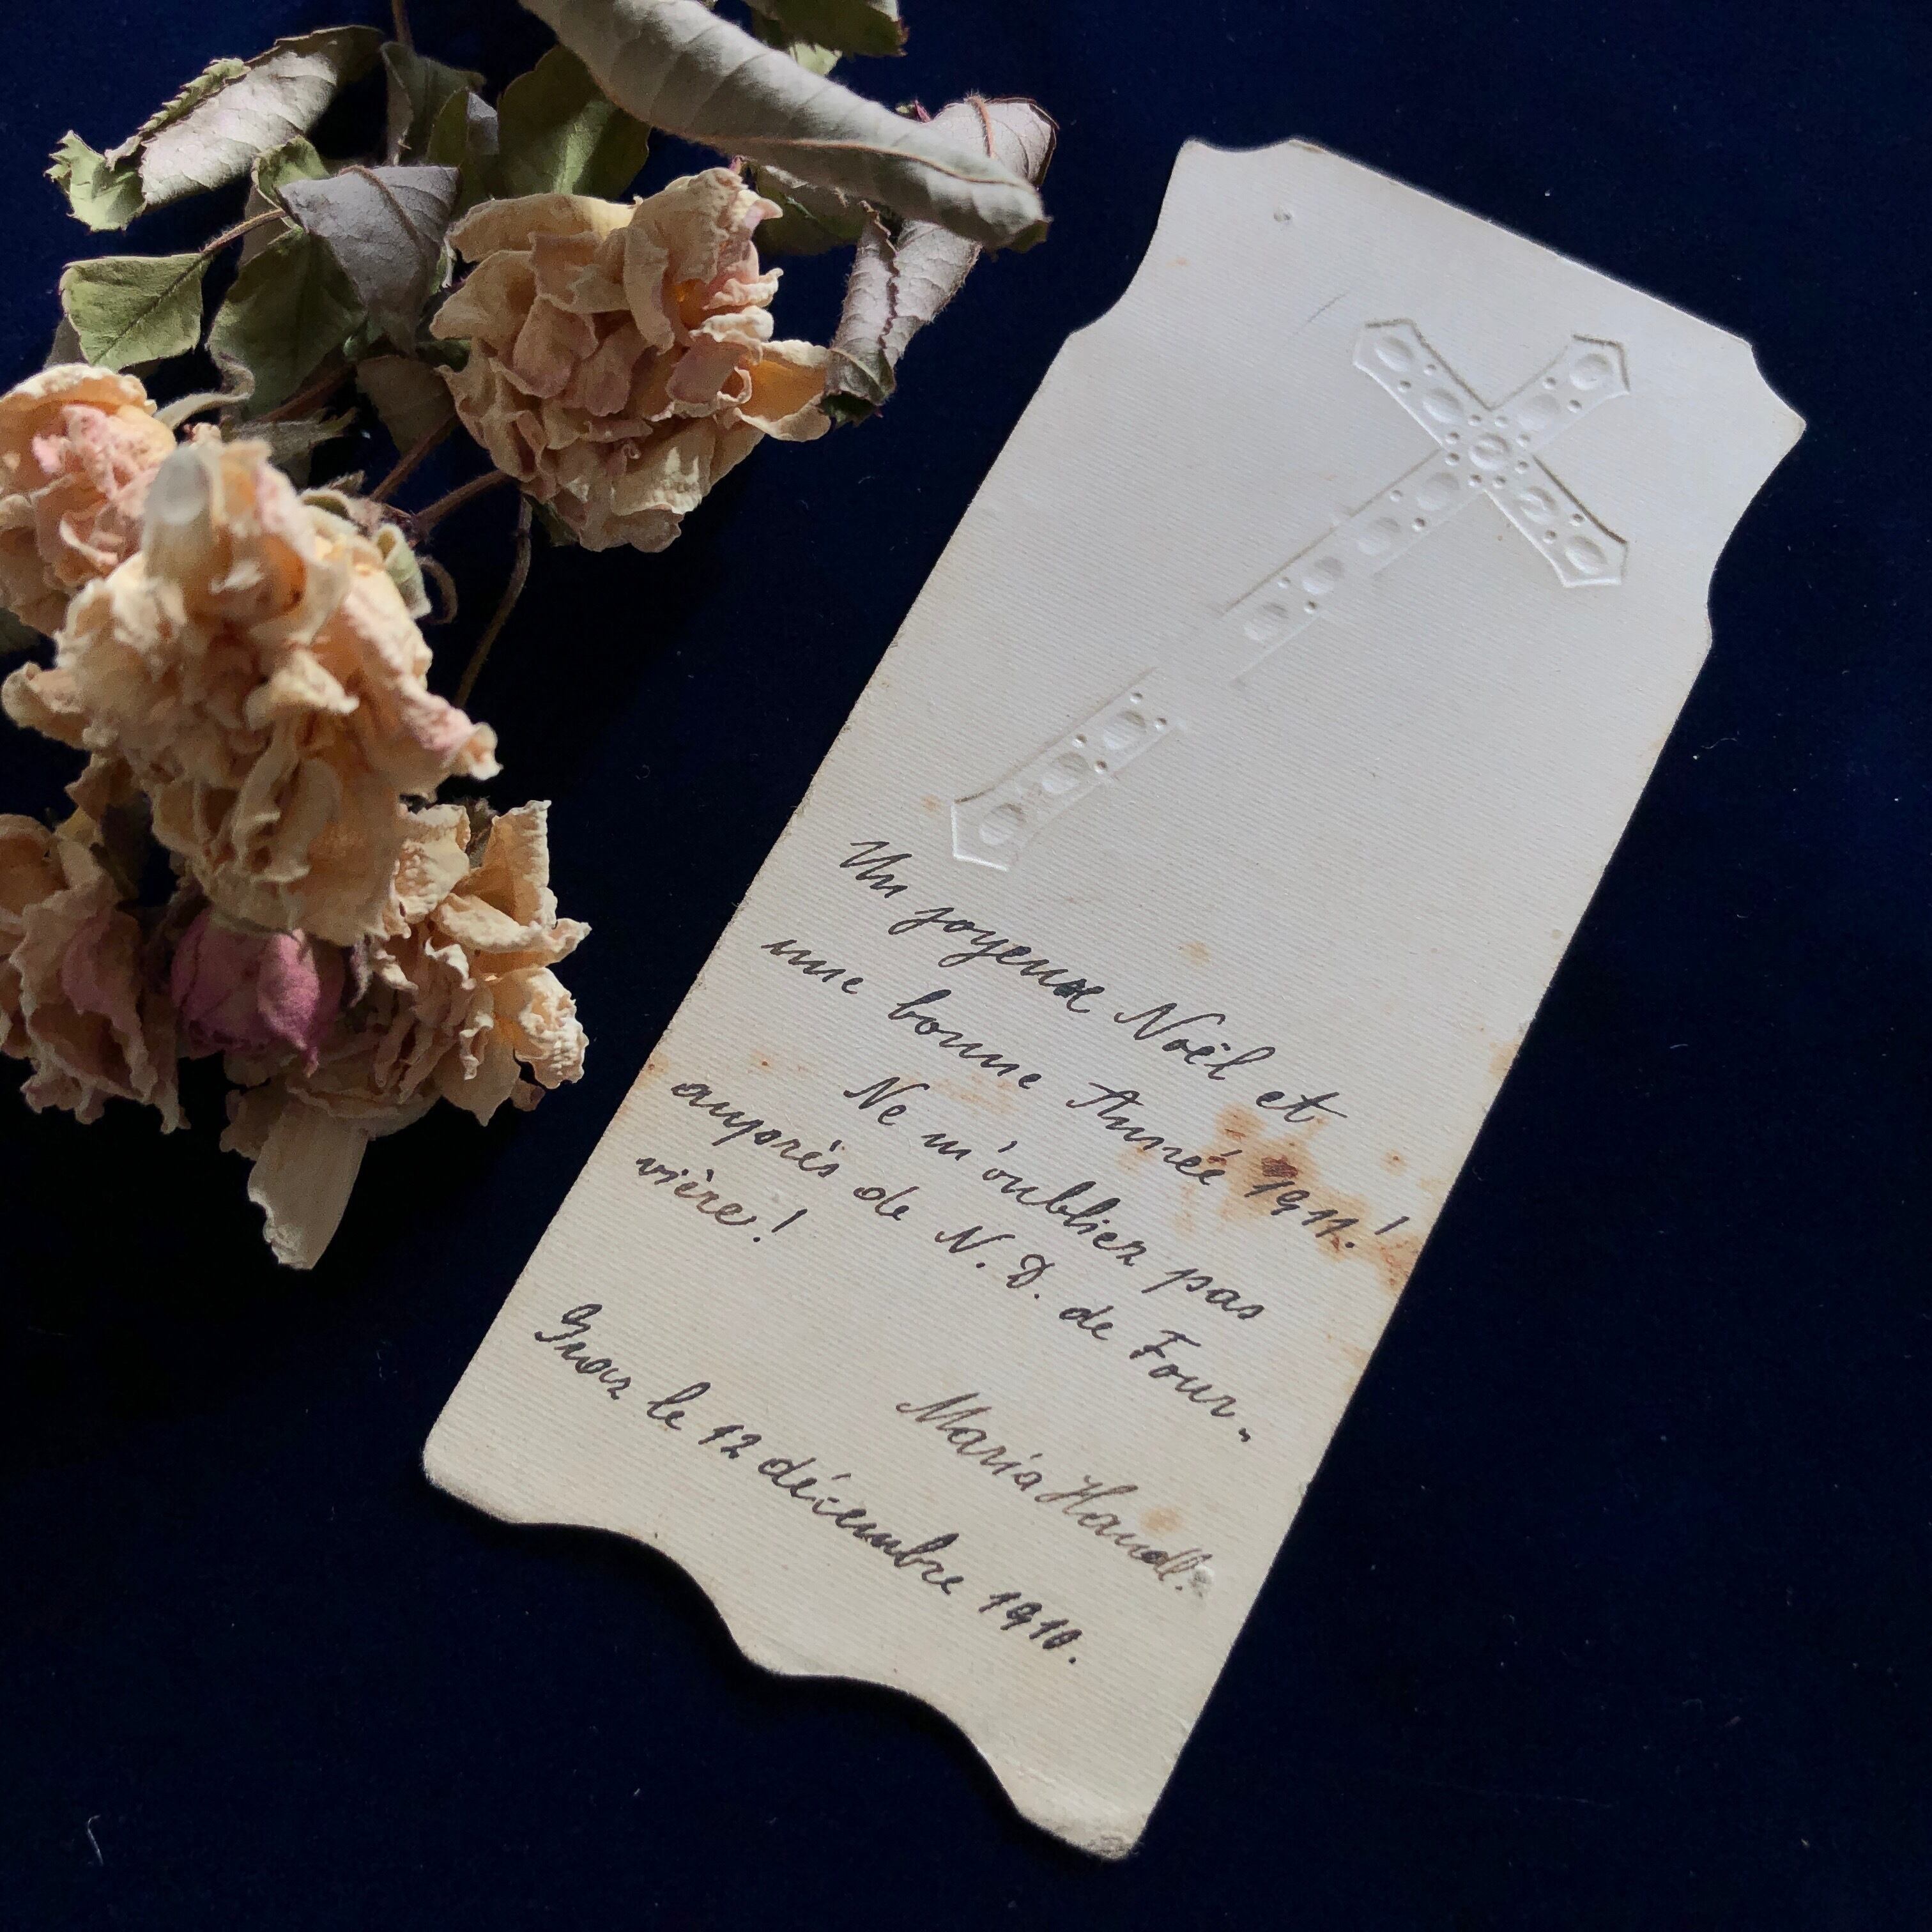 Un joyeux Noël et
une bonne Année 1911.!
Ne m'oubliez pas
auprès de N. D. de Four-
vière!
Maria Handl.
Graz le 12 décembre 1910.